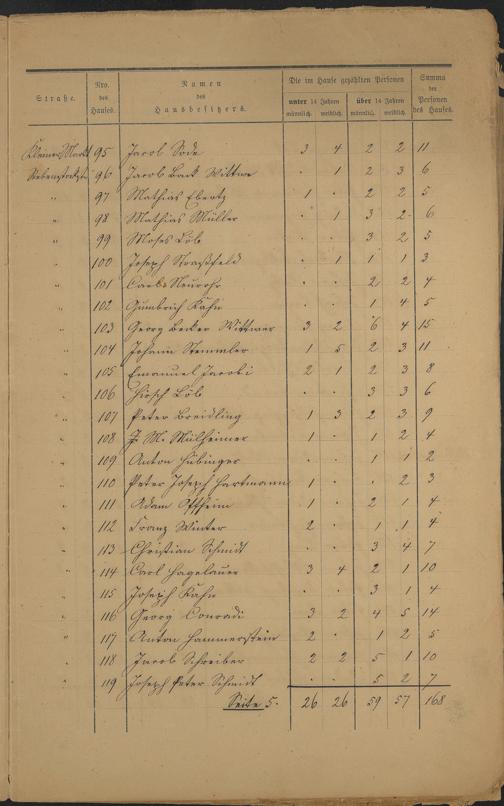 Straße.
Nro. des Hauses.
Namen des Hausbesitzers.
Die im Hause gezählten Personen
unter 14 Jahren
über 14 Jahren
männlich. weiblich. männlich. weiblich.
Summa der Personen des Hauses.
Kleiner Markt 95 Jacob Sode 3 4 2 2 11
96 Jacob Back Wittwe . 1 2 3 6
" 97 Mathias Ebertz 1 . 2 2 5
" 98 Mathias Müller . 1 3 2 6
" 99 Moses Löb . . 3 2 5
" 100 Joseph . 1 1 1 3
" 101 Carl Neurohr . . 2 2 4
" 102 Gumbrich Kahn . . 1 4 5
" 103 Georg Becker Wittwer 3 2 6 4 15
" 104 Johann Stemmler 1 5 2 3 11
" 105 Emanuel Jacobi 2 1 2 3 8
" 106 Hirsch Löb . . 3 3 6
" 107 Peter Breidling 1 3 2 3 9
" 108 M. Mülheimer 1 . 1 2 4
" 109 Anton Hubinger . . 1 1 2
" 110 Peter Joseph Hartmann 1 . . 2 3
" 111 Adam 1 . 2 1 4
" 112 Franz Winter 2 . 1 1 4
" 113 Christian Schmidt . . 3 4 7
" 114 Carl Hagelauer 3 4 2 1 10
" 115 Joseph Kahn . . 3 1 4
" 116 Georg Conradi 3 2 4 5 14
" 117 Anton Hammerstein 2 . 1 2 5
" 118 Jacob Schreiber 2 2 5 1 10
" 119 Joseph Peter Schmidt . . 5 2 7
Seite 5. 26 26 59 57 168